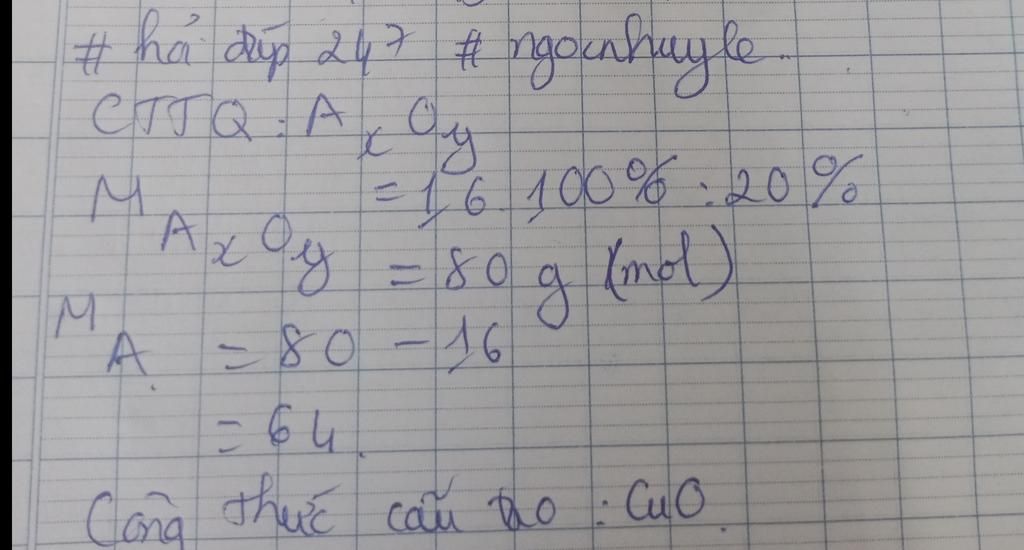 # hỏi đáp 247 # ngocnhuyle.
CTTQ : AxOy
M AxOy = 16.100% : 20%
= 80 g (mol)
M A = 80 - 16
= 64.
Công thức cấu tạo : CuO.